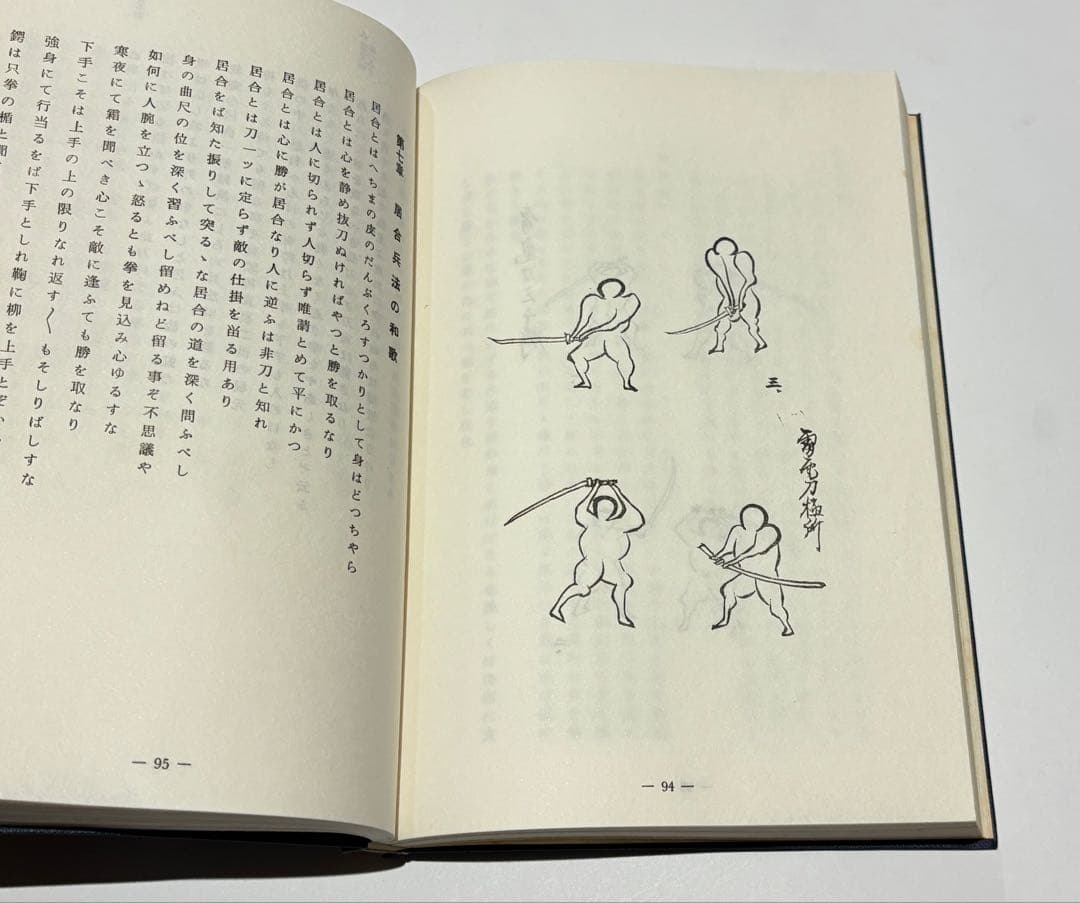 三、
雷電刀極所
— 94 —
第七章 居合兵法の和歌
居合とはへちまの皮のだんぶくろすつかりとして身はどつちやら
居合とは心を静め抜刀ぬければやつと勝を取るなり
居合とは人に切られず人切らず唯請とめて平にかつ
居合とは心に勝が居合なり人に逆ふは非刀と知れ
居合とは刀一ッに定らず敵の仕掛を当る用あり
居合をば知た振りして突るゝな居合の道を深く問ふべし
身の曲尺の位を深く習ふべし留めねど留る事ぞ不思議や
如何に人腕を立つゝ怒るとも拳を見込み心ゆるすな
寒夜にて霜を聞べき心こそ敵に逢ふても勝を取なり
下手こそは上手の上の限りなれ返す〱もそしりばしすな
強身にて行当るをば下手としれ鞠に柳を上手とぞ
鍔は只拳の楯と聞
— 95 —